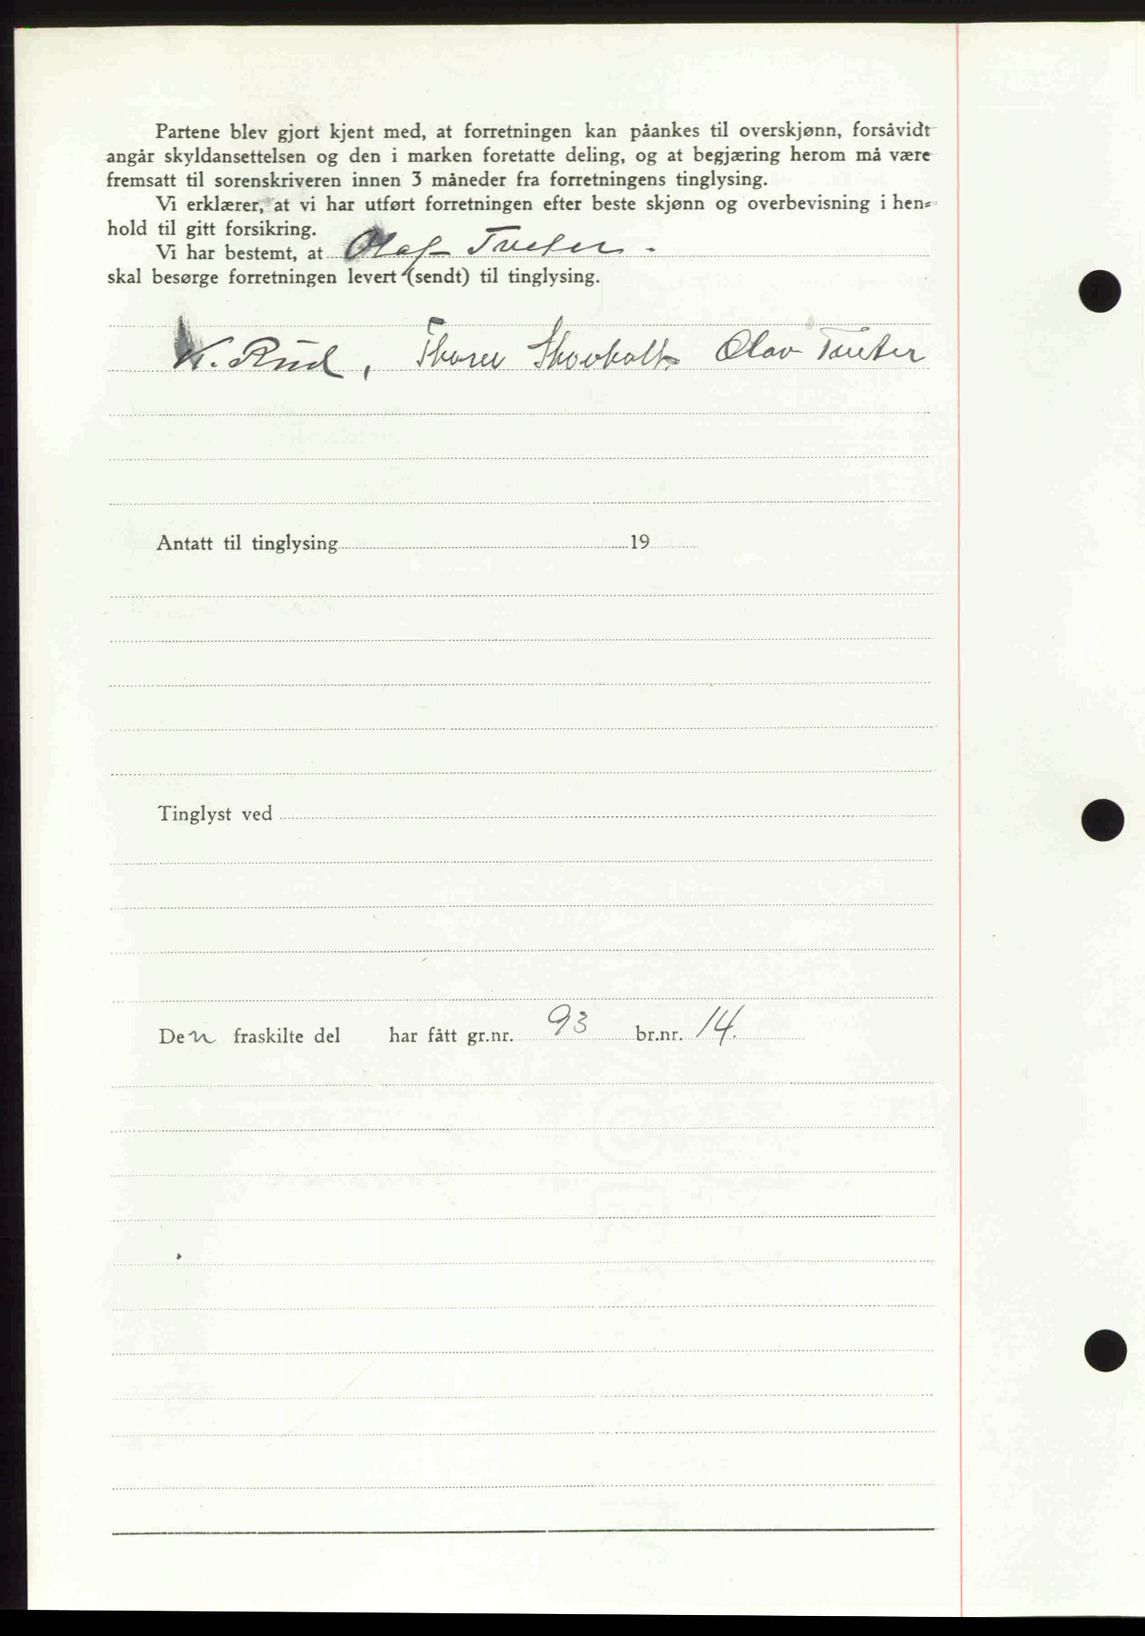 Partene blev gjort kjent med, at forretningen kan påankes til overskjønn, forsåvidt
angår skyldansettelsen og den i marken foretatte deling, og at begjæring herom må være
fremsatt til sorenskriveren innen 3 måneder fra forretningens tinglysing.
Vi erklærer, at vi har utført forretningen efter beste skjønn og overbevisning i hen-
hold til gitt forsikring.
Vi har bestemt, at Olaf Tveter.
skal besørge forretningen levert (sendt) til tinglysing.
K. Rud, Thorer Skovholt Olav Tveter
Antatt til tinglysing 19
Tinglyst ved
Den fraskilte del har fått gr.nr. 93 br.nr. 14.